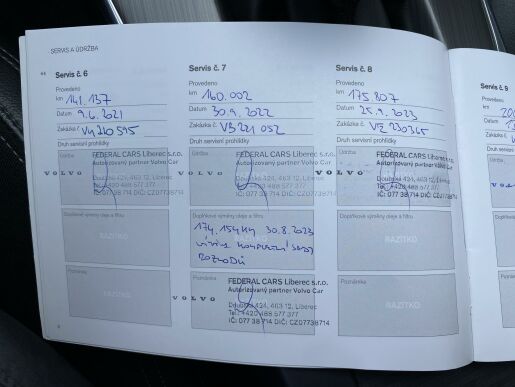 SERVIS A ÚDRŽBA
Servis č. 6
Provedeno
km 141.137
Datum 9.6.2021
Zakázka č.
Druh servisní prohlídky
Údržba
FEDERAL CARS Liberec s.r.o.
Autorizovaný partner Volvo Car
VOLVO
Doubská 424, 463 12, Liberec
Tel.: +420 488 577 377
IČ: 077 38 714 DIČ: CZ07738714
Doplňkové výměny oleje a filtru
RAZÍTKO
Poznámka
RAZÍTKO
Servis č. 7
Provedeno
km 160.002
Datum 30.9.2022
Zakázka č. V3221052
Druh servisní prohlídky
FEDERAL CARS Liberec s.r.o.
Autorizovaný partner Volvo Car
VOLVO
Doubská 424, 463 12, Liberec
Tel.: +420 488 577 377
IČ: 077 38 714 DIČ: CZ07738714
Doplňkové výměny oleje a filtru
174.154 KM 30.8.2023
výměna kompletní sady
ROZVODŮ
Poznámka
FEDERAL CARS Liberec s.r.o.
Autorizovaný partner Volvo Car
VOLVO
Doubská 424, 463 12, Liberec
Tel.: +420 488 577 377
IČ: 077 38 714 DIČ: CZ07738714
Servis č. 8
Provedeno
km 175.807
Datum 25.9.2023
Zakázka č.
Druh servisní prohlídky
FEDERAL CARS Liberec s.r.o.
Autorizovaný partner Volvo Car
VOLVO
Doubská 424, 463 12, Liberec
Tel.: +420 488 577 377
IČ: 077 38 714 DIČ: CZ07738714
Doplňkové výměny oleje a filtru
RAZÍTKO
Poznámka
RAZÍTKO
Servis č. 9
Provedeno
km
Datum
Zakázka č.
Druh servisní
Údržba
VOLVO
Doplňkové
Poznámka